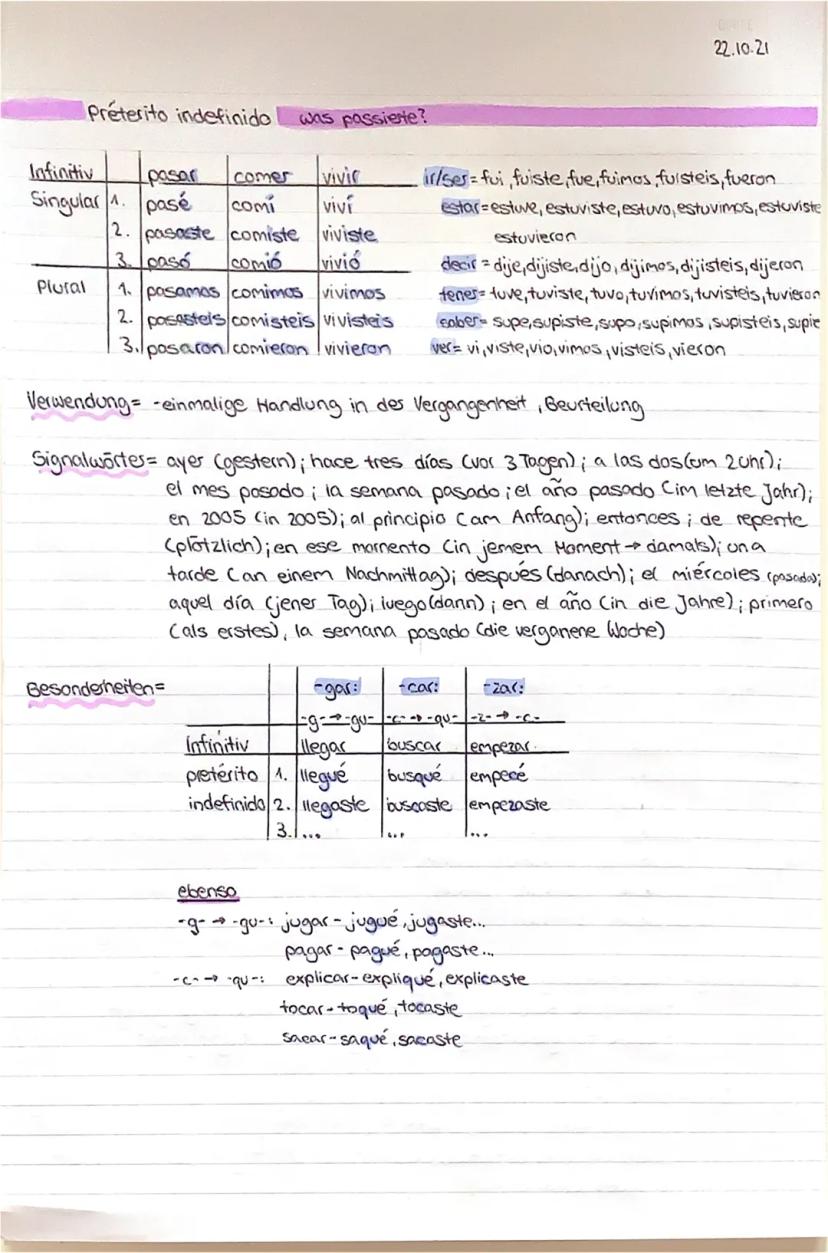 22.10.21
Préterito indefinido was passierte?
Infinitiv pasar comer vivir ir/ser = fui, fuiste, fue, fuimos, fuisteis, fueron
Singular 1. pasé comí viví estar = estuve, estuviste, estuvo, estuvimos, estuviste
2. pasaste comiste viviste estuvieron
3. pasó comió vivió decir = dije, dijiste, dijo, dijimos, dijisteis, dijeron
Plural 1. pasamos comimos vivimos tener = tuve, tuviste, tuvo, tuvimos, tuvisteis, tuvieron
2. pasasteis comisteis vivisteis saber = supe, supiste, supo, supimos, supisteis, supie
3. pasaron comieron vivieron ver = vi, viste, vio, vimos, visteis, vieron
Verwendung = -einmalige Handlung in der Vergangenheit, Beurteilung
Signalwörter = ayer (gestern); hace tres días (vor 3 Tagen); a las dos (um 2 Uhr);
el mes pasado; la semana pasado; el año pasado (im letzte Jahr);
en 2005 (in 2005); al principio (am Anfang); entonces; de repente
(plötzlich); en ese momento (in jemem Moment → damals); una
tarde (an einem Nachmittag); después (danach); el miércoles (pasado);
aquel día (jener Tag); luego (dann); en el año (in die Jahre); primero
(als erstes), la semana pasado (die verganene Woche)
Besonderheiten = -gar: -car: -zar:
-g- → -gu- -c- → -qu- -z- → -c-
Infinitiv llegar buscar empezar
pretérito 1. llegué busqué empecé
indefinido 2. llegaste buscaste empezaste
3. ... ... ...
ebenso
-g- → -gu-: jugar - jugué, jugaste...
pagar - pagué, pagaste...
-c- → -qu-: explicar - expliqué, explicaste
tocar - toqué, tocaste
sacar - saqué, sacaste